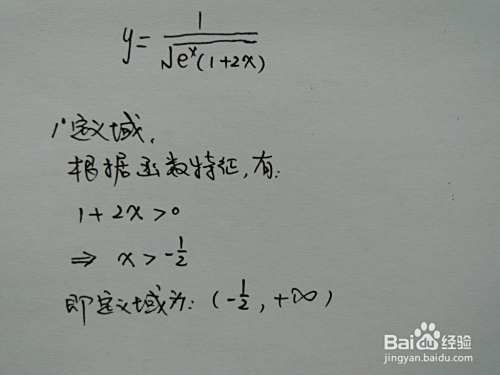 y = 1/√(e^x(1+2x))
1°定义域,
根据函数特征,有:
1+2x>0
⇒ x>-1/2
即定义域为: (-1/2, +∞)
Bai度经验
jingyan.baidu.com